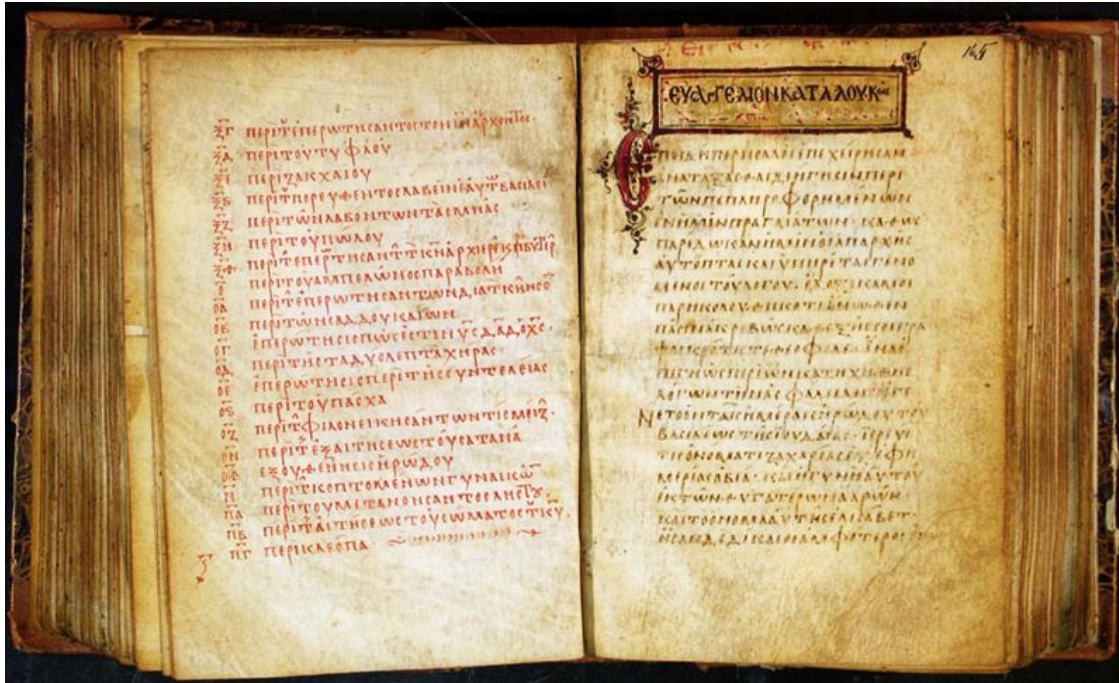 ξγ περι τ επερωτησαντος τον ιν αρχοντος
ξδ περι του τυφλου
ξε περι ζακχαιου
ξϛ περι τ πορευθεντος λαβειν εαυτ βασιλει
ξζ περι των λαβοντων τας μνας
ξη περι του πωλου
ξθ περι τ τ κν αρχιερε
ο περι του αμπελωνος παραβολη
οα περι τ επερωτησαντων δια τ κηνσο
οβ περι των σαδδουκαιων
ογ επερωτησις πως εστιν υς δαδ ο χς
οδ περι της τα δυο λεπτα χηρας
οε επερωτησις περι της συντελειας
οϛ περι του πασχα
οζ περι τ φιλονεικησαντων τις μειζ
οη περι τ εξαιτησεως του σατανα
οθ εξουθενησις ηρωδου
π περι τ κοπτομενων γυναικω
πα περι του μετανοησαντος ληστου
πβ περι τ αιτησεως του σωματος τ κυ
πγ περι κλεοπα
165
ΕΥΑΓΓΕΛΙΟΝ ΚΑΤΑ ΛΟΥΚ
Επιδηπερ πολλοι επεχειρησαν
αναταξασθαι διηγησιν περι
των πεπληροφορημενων
εν ημιν πραγματων· καθως
παρεδωκαν ημιν οι απ αρχης
αυτοπται και υπηρεται γενο
μενοι του λογου· εδοξε καμοι
παρηκολουθηκοτι ανωθεν
πασιν ακριβως καθεξης σοι γρα
ψαι κρατιστε θεοφιλε· ινα ε
πιγνως περι ων κατηχηθης
λογων την ασφαλειαν· εγε
νετο εν ταις ημεραις ηρωδου του
βασιλεως της ιουδαιας· ιερευς
τις ονοματι ζαχαριας εξ εφη
μεριας αβια· και η γυνη αυτου
εκ των θυγατερων ααρων
και το ονομα αυτης ελισαβετ·
ησαν δε δικαιοι αμφοτεροι